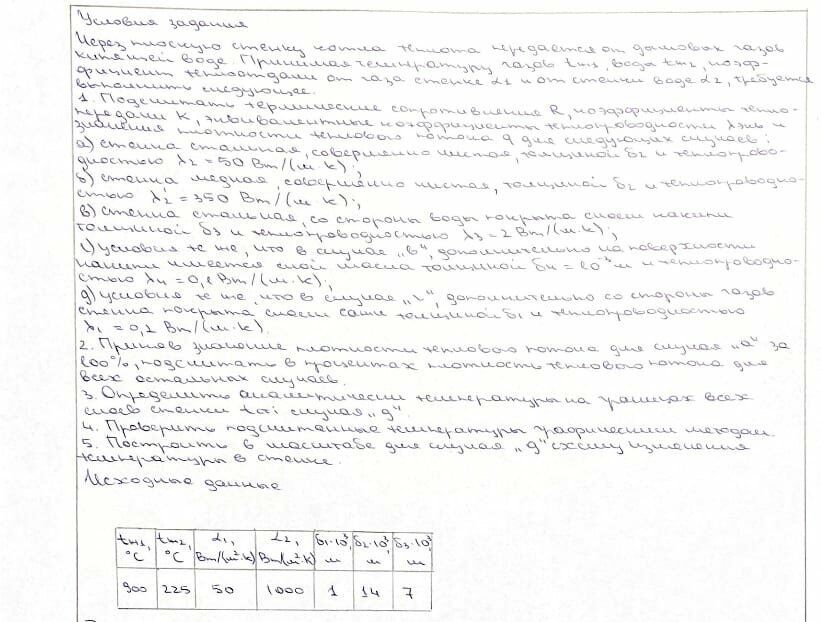 Условия задания
Через плоскую стенку котла теплота передается от дымовых газов
кипящей воде. Принимая температуру газов tж1, воды tж2, коэф-
фициент теплоотдачи от газа стенке α1 и от стенки воде α2, требуется
выполнить следующее.
1. Подсчитать термические сопротивления R, коэффициенты тепло-
передачи K, эквивалентные коэффициенты теплопроводности λэкв и
значения плотности теплового потока q для следующих случаев:
а) стенка стальная, совершенно чистая, толщиной δ2 и теплопрово-
дностью λ2 = 50 Вт/(м·К);
б) стенка медная, совершенно чистая, толщиной δ2 и теплопроводно-
стью λ2' = 350 Вт/(м·К);
в) стенка стальная, со стороны воды покрыта слоем накипи
толщиной δ3 и теплопроводностью λ3 = 2 Вт/(м·К);
г) условия те же, что в случае „в", дополнительно на поверхности
накипи имеется слой масла толщиной δ4 = 10⁻³ м и теплопроводно-
стью λ4 = 0,1 Вт/(м·К);
д) условия те же, что в случае „г", дополнительно со стороны газов
стенка покрыта слоем сажи толщиной δ1 и теплопроводностью
λ1 = 0,2 Вт/(м·К).
2. Приняв значение плотности теплового потока для случая „а" за
100%, подсчитать в процентах плотность теплового потока для
всех остальных случаев.
3. Определить аналитически температуры на границах всех
слоев стенки tсi случая „д".
4. Проверить подсчитанные температуры графическим методом.
5. Построить в масштабе для случая „д" схему изменения
температуры в стенке.
Исходные данные
tж1, °С tж2, °С α1, Вт/(м²·К) α2, Вт/(м²·К) δ1·10³, м δ2·10³, м δ3·10³, м
900 225 50 1000 1 14 7